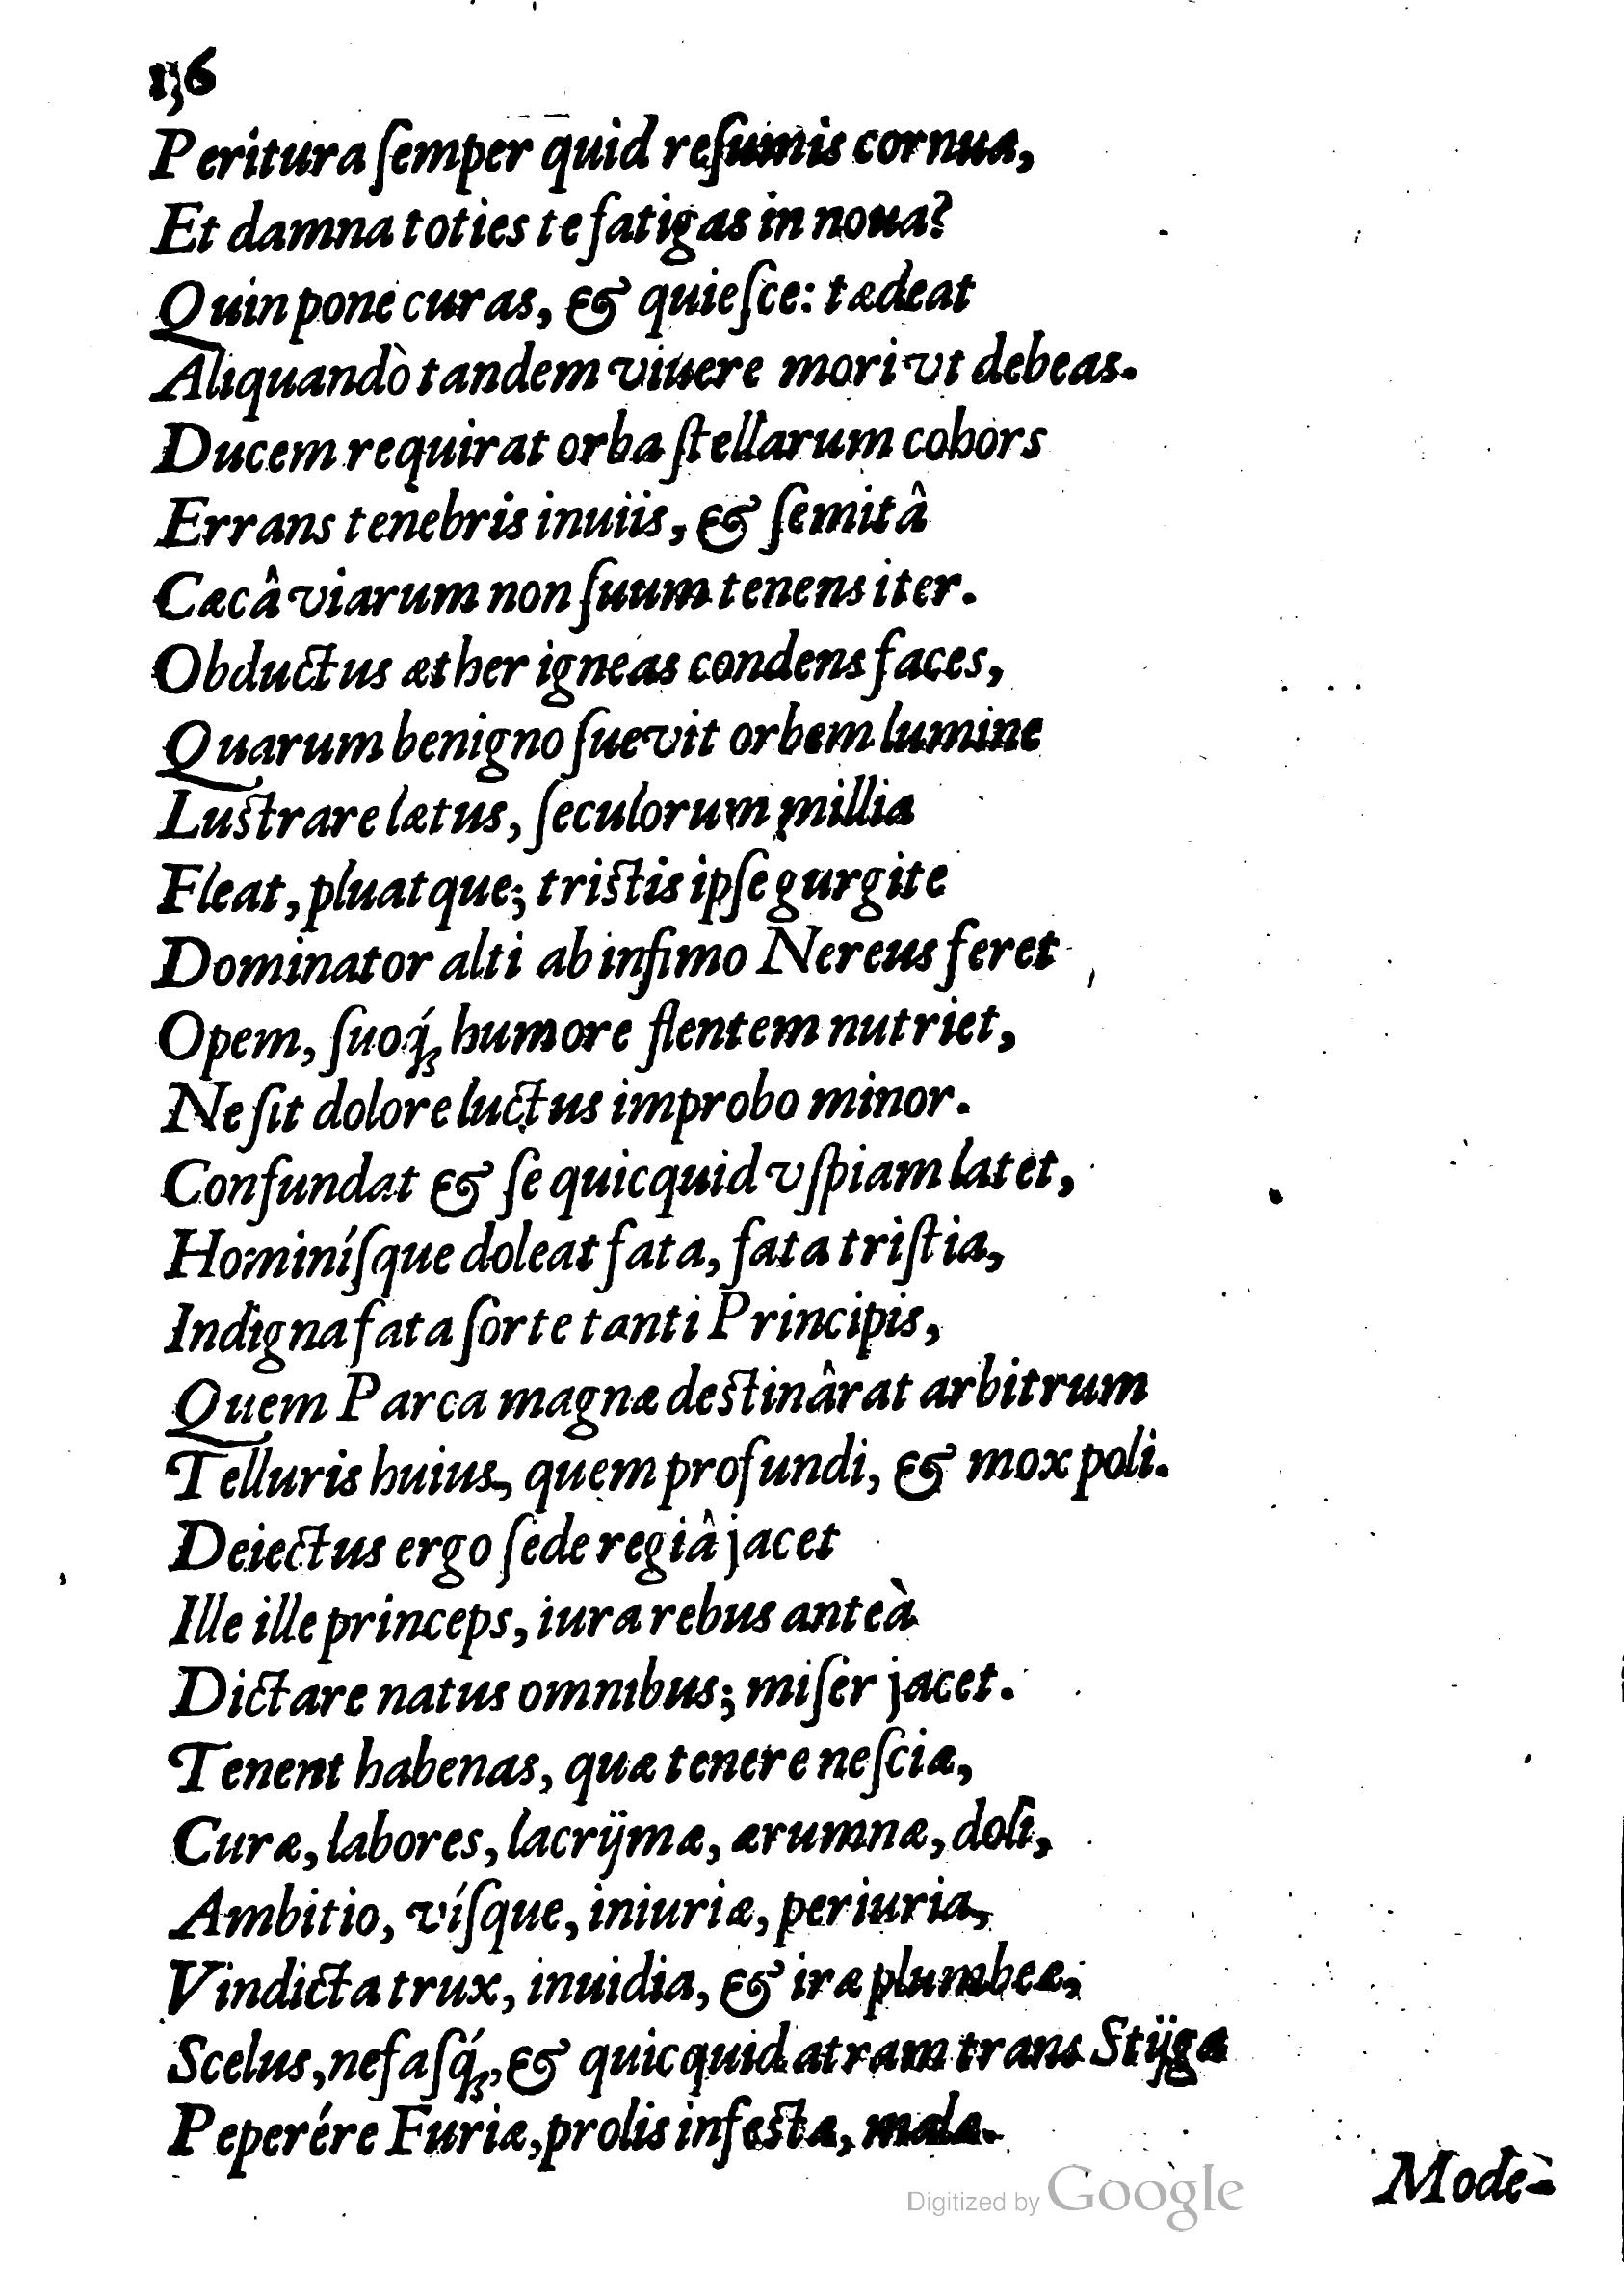 136
Peritura ſemper quid reſumis cornua,
Et damna toties te fatigas in noua?
Quin pone curas, & quieſce: tædeat
Aliquandò tandem viuere mori vt debeas.
Ducem requirat orba ſtellarum cohors
Errans tenebris inuiis, & ſemitâ
Cæcâ viarum non ſuum tenens iter.
Obductus æther igneas condens faces,
Quarum benigno ſuevit orbem lumine
Luſtrare lætus, ſeculorum millia
Fleat, pluatque; triſtis ipſe gurgite
Dominator alti ab infimo Nereus feret
Opem, ſuoq́ꝫ humore flentem nutriet,
Ne ſit dolore luctus improbo minor.
Confundat & ſe quicquid vſpiam latet,
Hominíſque doleat fata, fata triſtia,
Indigna fata ſorte tanti Principis,
Quem Parca magnæ deſtinârat arbitrum
Telluris huius, quem profundi, & mox poli.
Deiectus ergo ſede regiâ jacet
Ille ille princeps, iura rebus anteà
Dictare natus omnibus; miſer jacet.
Tenent habenas, quæ tenere neſciæ,
Curæ, labores, lacrÿmæ, ærumnæ, doli,
Ambitio, víſque, iniuriæ, periuria,
Vindicta trux, inuidia, & iræ plumbeæ,
Scelus, nefaſq́ꝫ, & quicquid atram trans Stÿga
Peperére Furiæ, prolis infeſtæ, mala.
Mode-
Digitized by Google